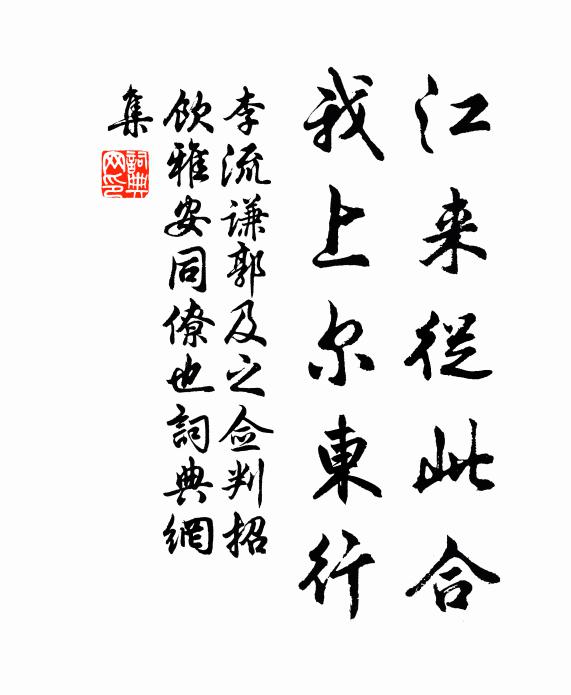 江来從此合
我上尔東行
李流谦郭及之佥判招
飲雅安同僚也詞典網
集
詞典
网印